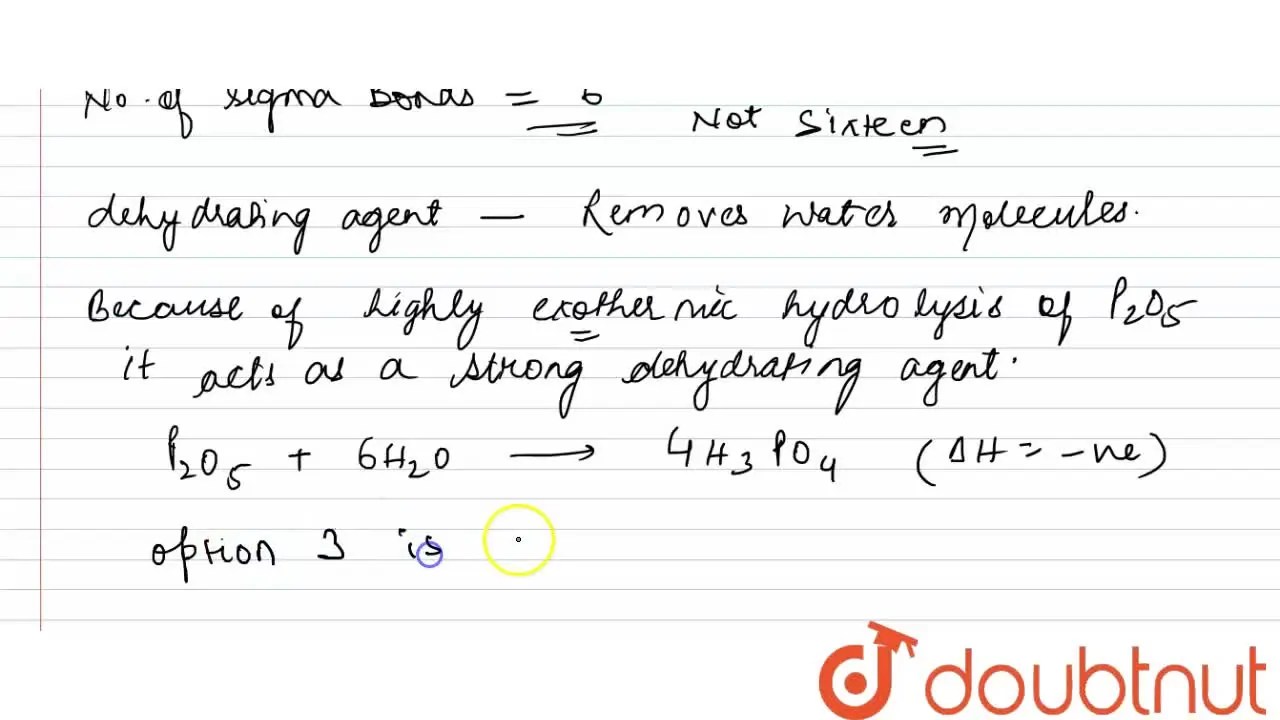 No. of sigma bonds = 6
Not Sixteen
dehydrating agent — Removes water molecules.
Because of highly exothermic hydrolysis of P₂O₅
it acts as a strong dehydrating agent.
P₂O₅ + 6H₂O ⟶ 4H₃PO₄ (ΔH = -ve)
option 3 is
doubtnut